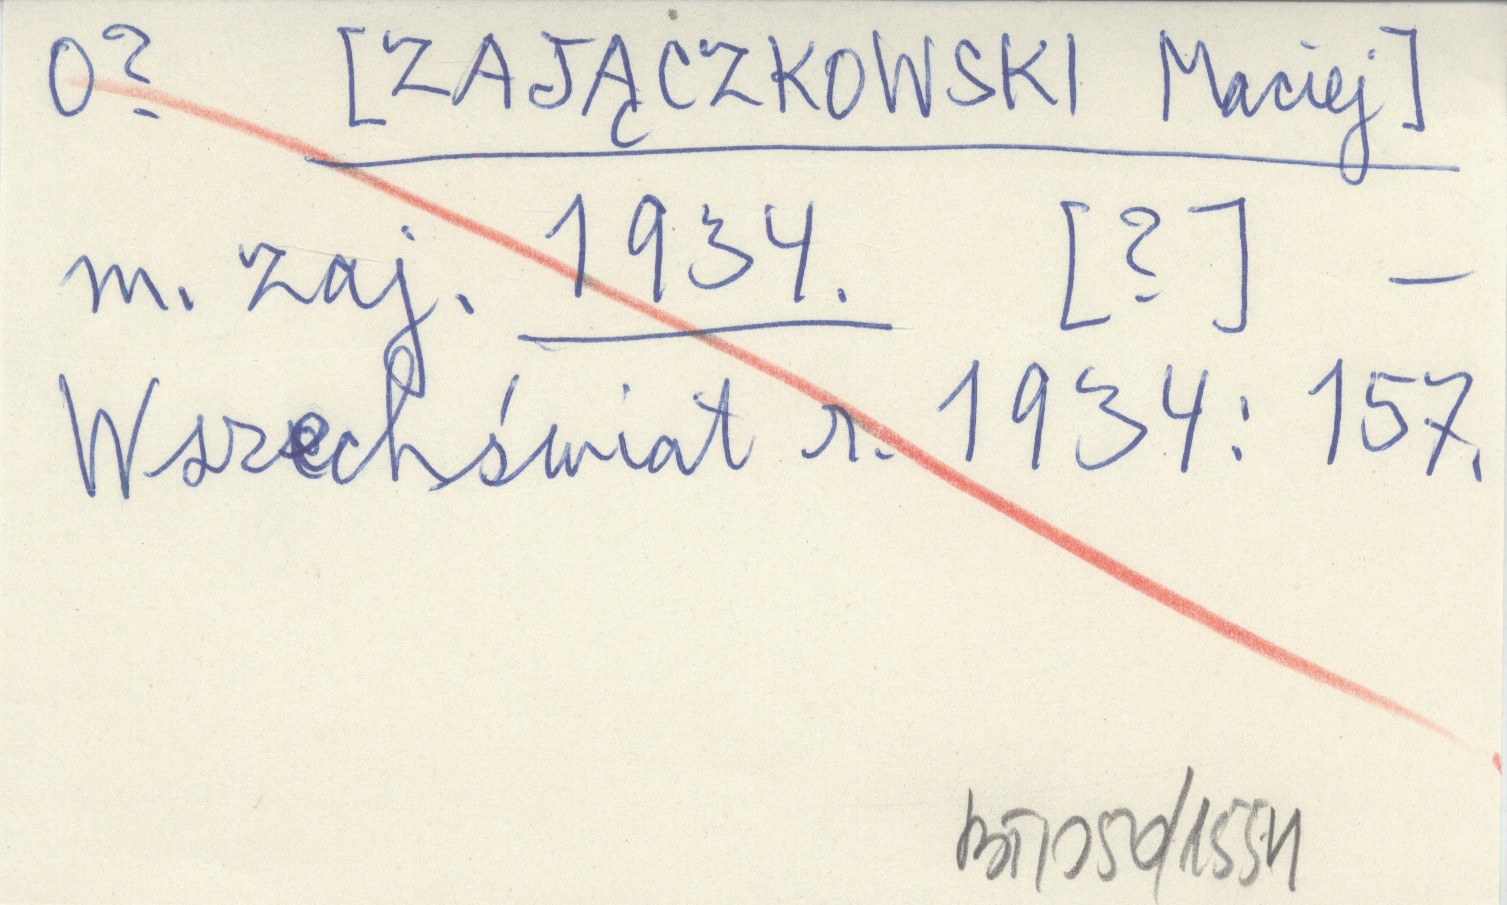 O? [ZAJĄCZKOWSKI Maciej]
m. zaj. 1934. [?] –
Wszechświat r. 1934: 157.